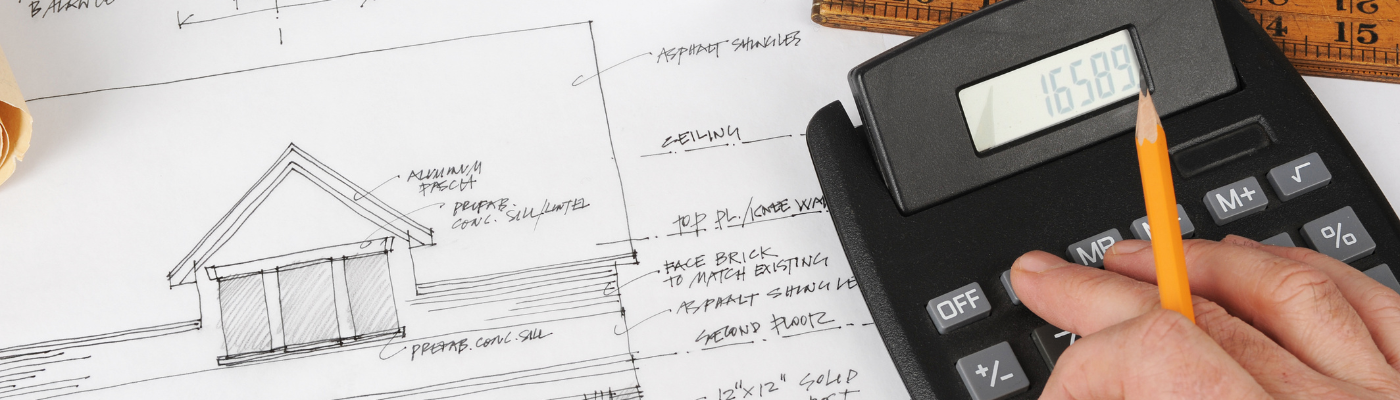 BALANCE
ASPHALT SHINGLES
CEILING
ALUMINUM
FASCIA
PREFAB.
CONC. SILL/LINTEL
TOP PL./KNEE WA
FACE BRICK
TO MATCH EXISTING
ASPHALT SHINGLE
SECOND FLOOR
PREFAB. CONC. SILL
12"x12" SOLID
16589
OFF
MR
M+
√
%
+/-
14
15